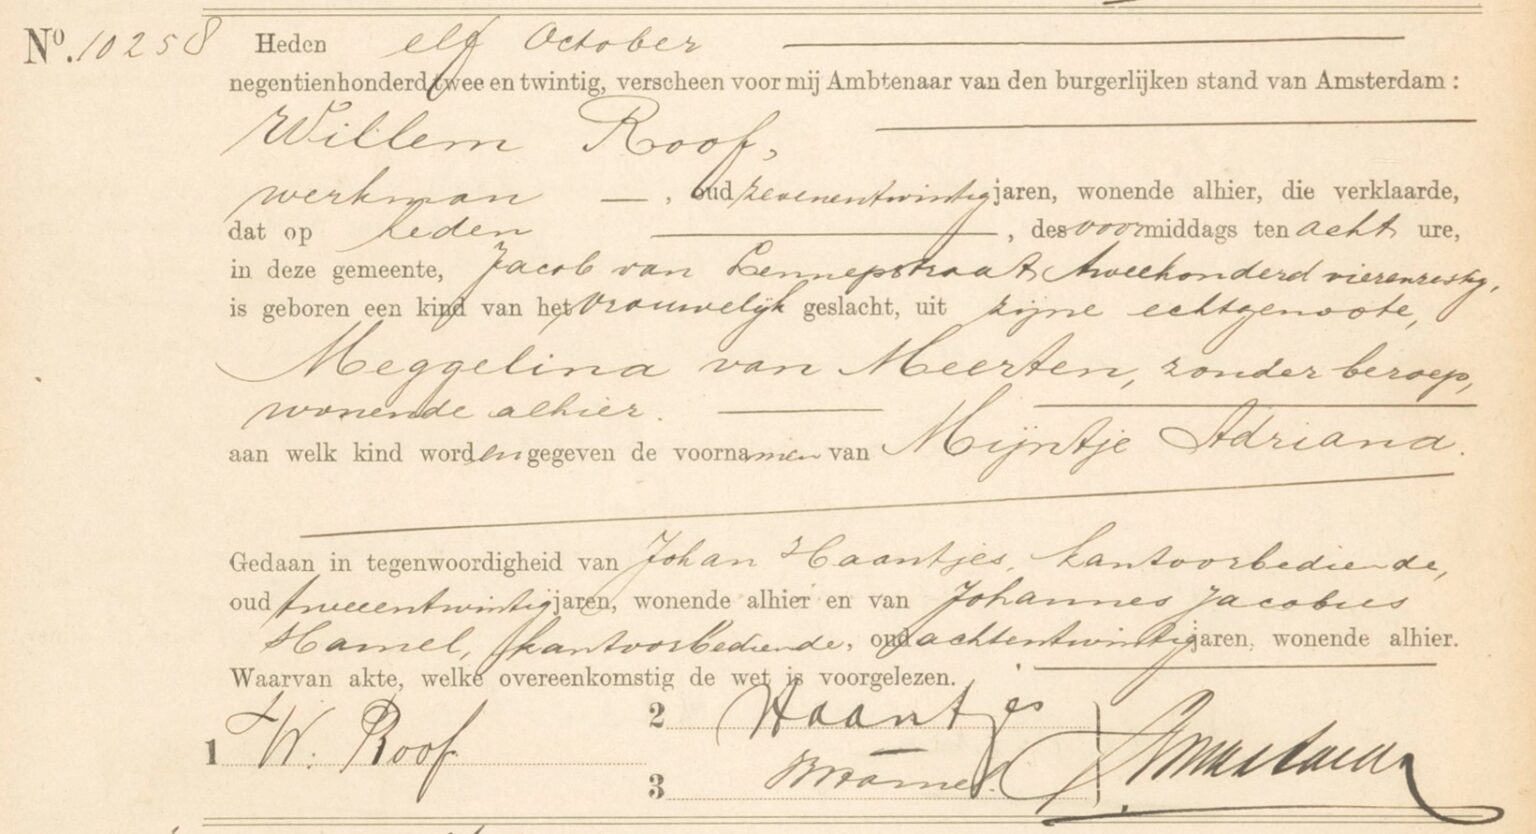 No. 10258 Heden elf October
negentienhonderd twee en twintig, verscheen voor mij Ambtenaar van den burgerlijken stand van Amsterdam :
Willem Roof,
werkman , oud zevenentwintig jaren, wonende alhier, die verklaarde,
dat op heden , des voormiddags ten acht ure,
in deze gemeente, Jacob van Lennepstraat tweehonderd vierenzestig,
is geboren een kind van het vrouwelijk geslacht, uit zijne echtgenoote,
Meggelina van Meerten, zonder beroep,
wonende alhier.
aan welk kind worden gegeven de voornamen van Mijntje Adriana.
Gedaan in tegenwoordigheid van Johan Haantjes, kantoorbediende,
oud tweeentwintig jaren, wonende alhier en van Johannes Jacobus
Hamel, kantoorbediende, oud achtentwintig jaren, wonende alhier.
Waarvan akte, welke overeenkomstig de wet is voorgelezen.
1 W. Roof
2 Haantjes
3